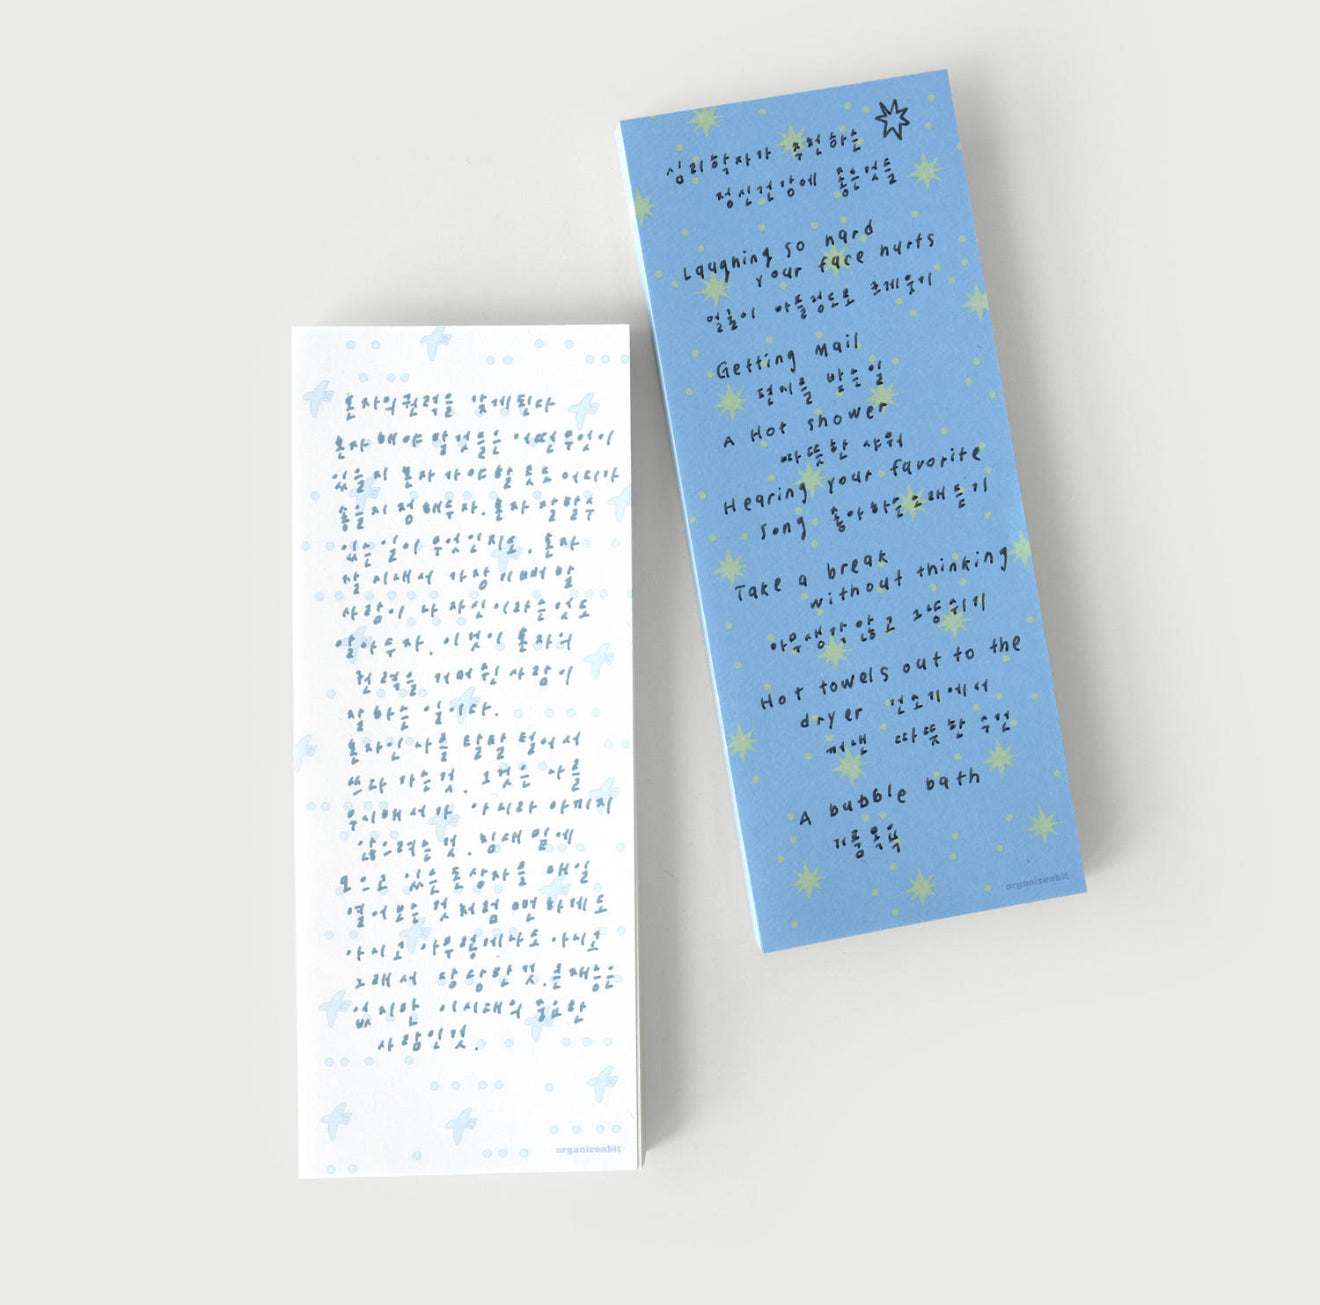 혼자의 권력을 갖게된다
혼자 해야 할것들은 어떤무엇이
있을지 혼자 가야할 곳도 어디가
좋을지 정해두자. 혼자 잘할수
있는일이 무엇인지도. 혼자
잘 지내서 가장 기뻐할
사람이 나 자신이라는것도
알아두자. 이것이 혼자의
권력을 거머쥔 사람이
잘 하는 일이다.
혼자인 나를 탈탈 털어서
쓰다 가는것. 그것은 나를
무시해서가 아니라 아끼지
않으려는 것. 침대 밑에
모으고 있는 돈상자를 매일
열어보는 것처럼 뻔하게도
아니고 아무렇에나도 아니고
그래서 당당한 것. 존재증은
없지만 이시대의 중요한
사람인것.
organizeabit
심리학자가 추천하는
정신건강에 좋은것들
Laughing so hard
your face hurts
얼굴이 아플정도로 크게웃기
Getting Mail
편지를 받는일
A Hot shower
따뜻한 샤워
Hearing your favorite
song 좋아하는노래 듣기
Take a break
without thinking
아무생각않고 그냥쉬기
Hot towels out to the
dryer 건조기에서
꺼낸 따뜻한 수건
A bubble bath
거품목욕
organizeabit